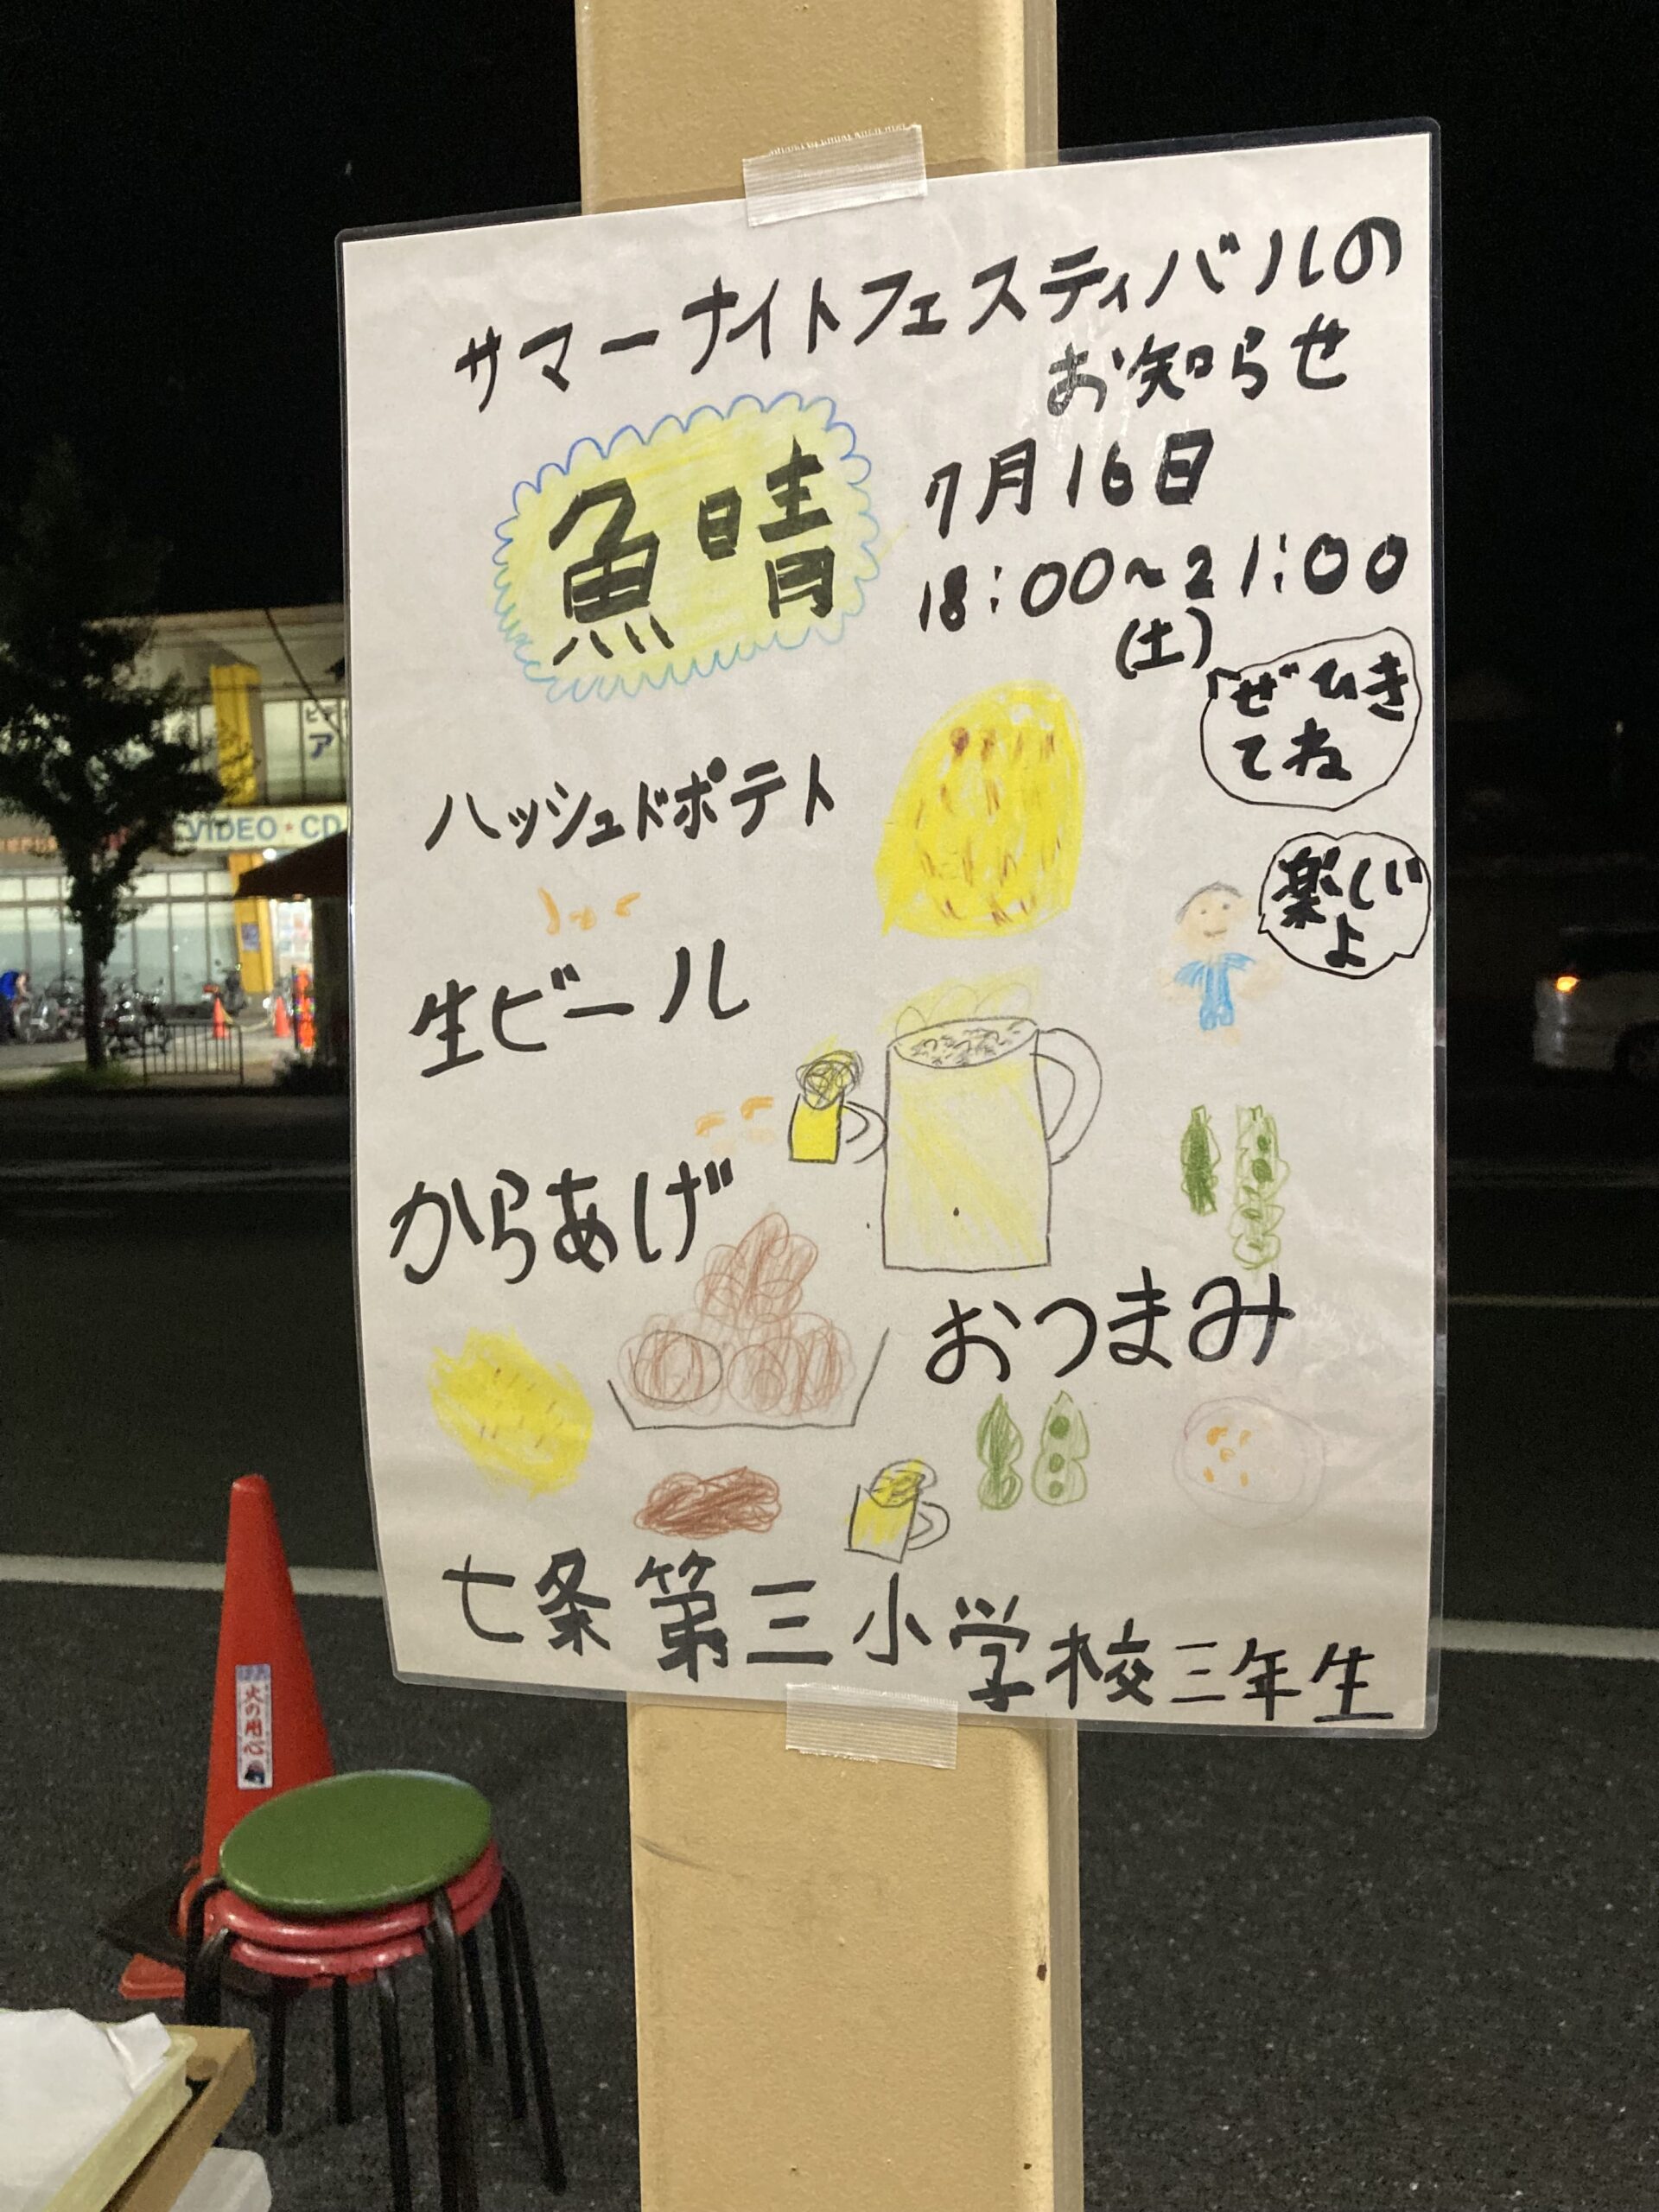 サマーナイトフェスティバルの
お知らせ
魚晴
7月16日
18:00~21:00
(土)
「ぜひき
てね
ハッシュドポテト
楽しい
よ
生ビール
からあげ
おつまみ
七条第三小学校三年生
VIDEO・CD
火の用心